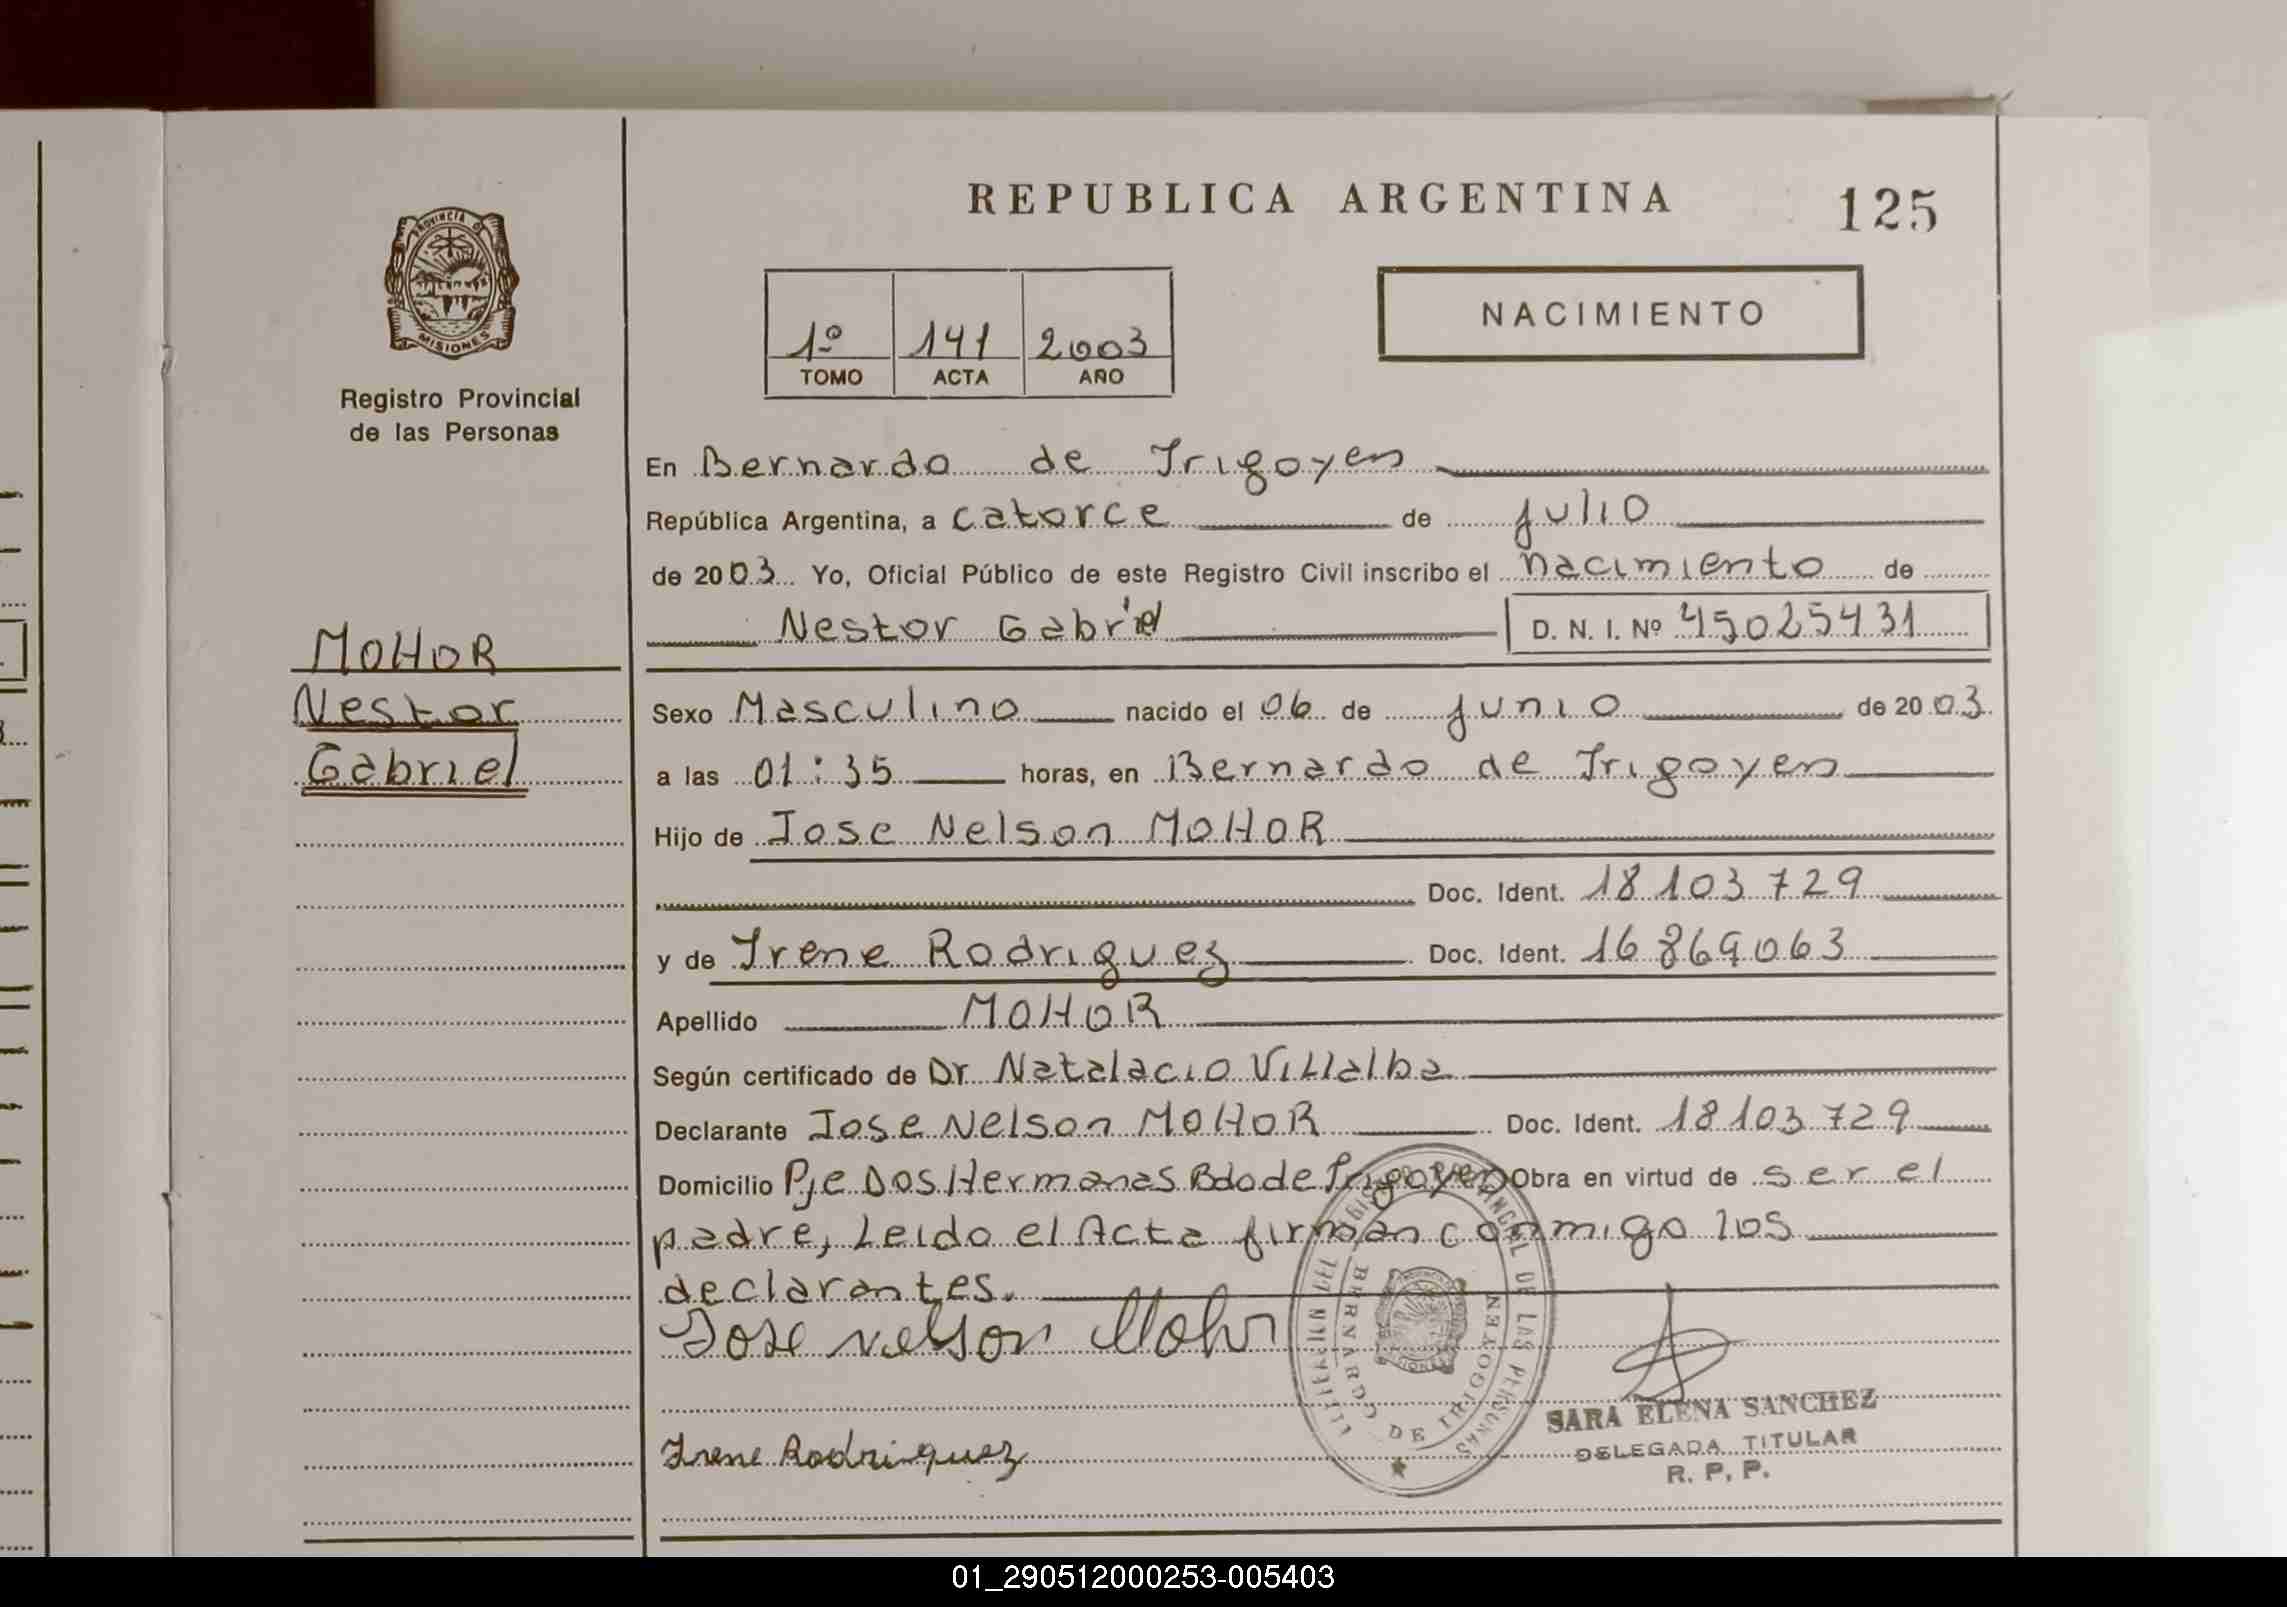 REPUBLICA ARGENTINA
125
PROVINCIA DE
MISIONES
Registro Provincial
de las Personas
1º 141 2003
TOMO ACTA AÑO
NACIMIENTO
En Bernardo de Irigoyen
República Argentina, a catorce de julio
de 2003 Yo, Oficial Público de este Registro Civil inscribo el nacimiento de
Nestor Gabriel D. N. I. Nº 45025431
MOHOR
Nestor
Gabriel
Sexo Masculino nacido el 06 de junio de 2003
a las 01:35 horas, en Bernardo de Irigoyen
Hijo de Jose Nelson MOHOR
Doc. Ident. 18 103 729
y de Irene Rodriguez Doc. Ident. 16 869 063
Apellido MOHOR
Según certificado de Dr Natalacio Villalba
Declarante Jose Nelson MOHOR Doc. Ident. 18 103 729
Domicilio Pje Dos Hermanas Bdo de Irigoyen Obra en virtud de ser el
padre, Leido el Acta firman conmigo los
declarantes.
Jose nelson Mohr
DE LAS PERSONAS
BERNARDO DE IRIGOYEN
SARA ELENA SANCHEZ
DELEGADA TITULAR
R. P. P.
Irene Rodriguez
01_290512000253-005403